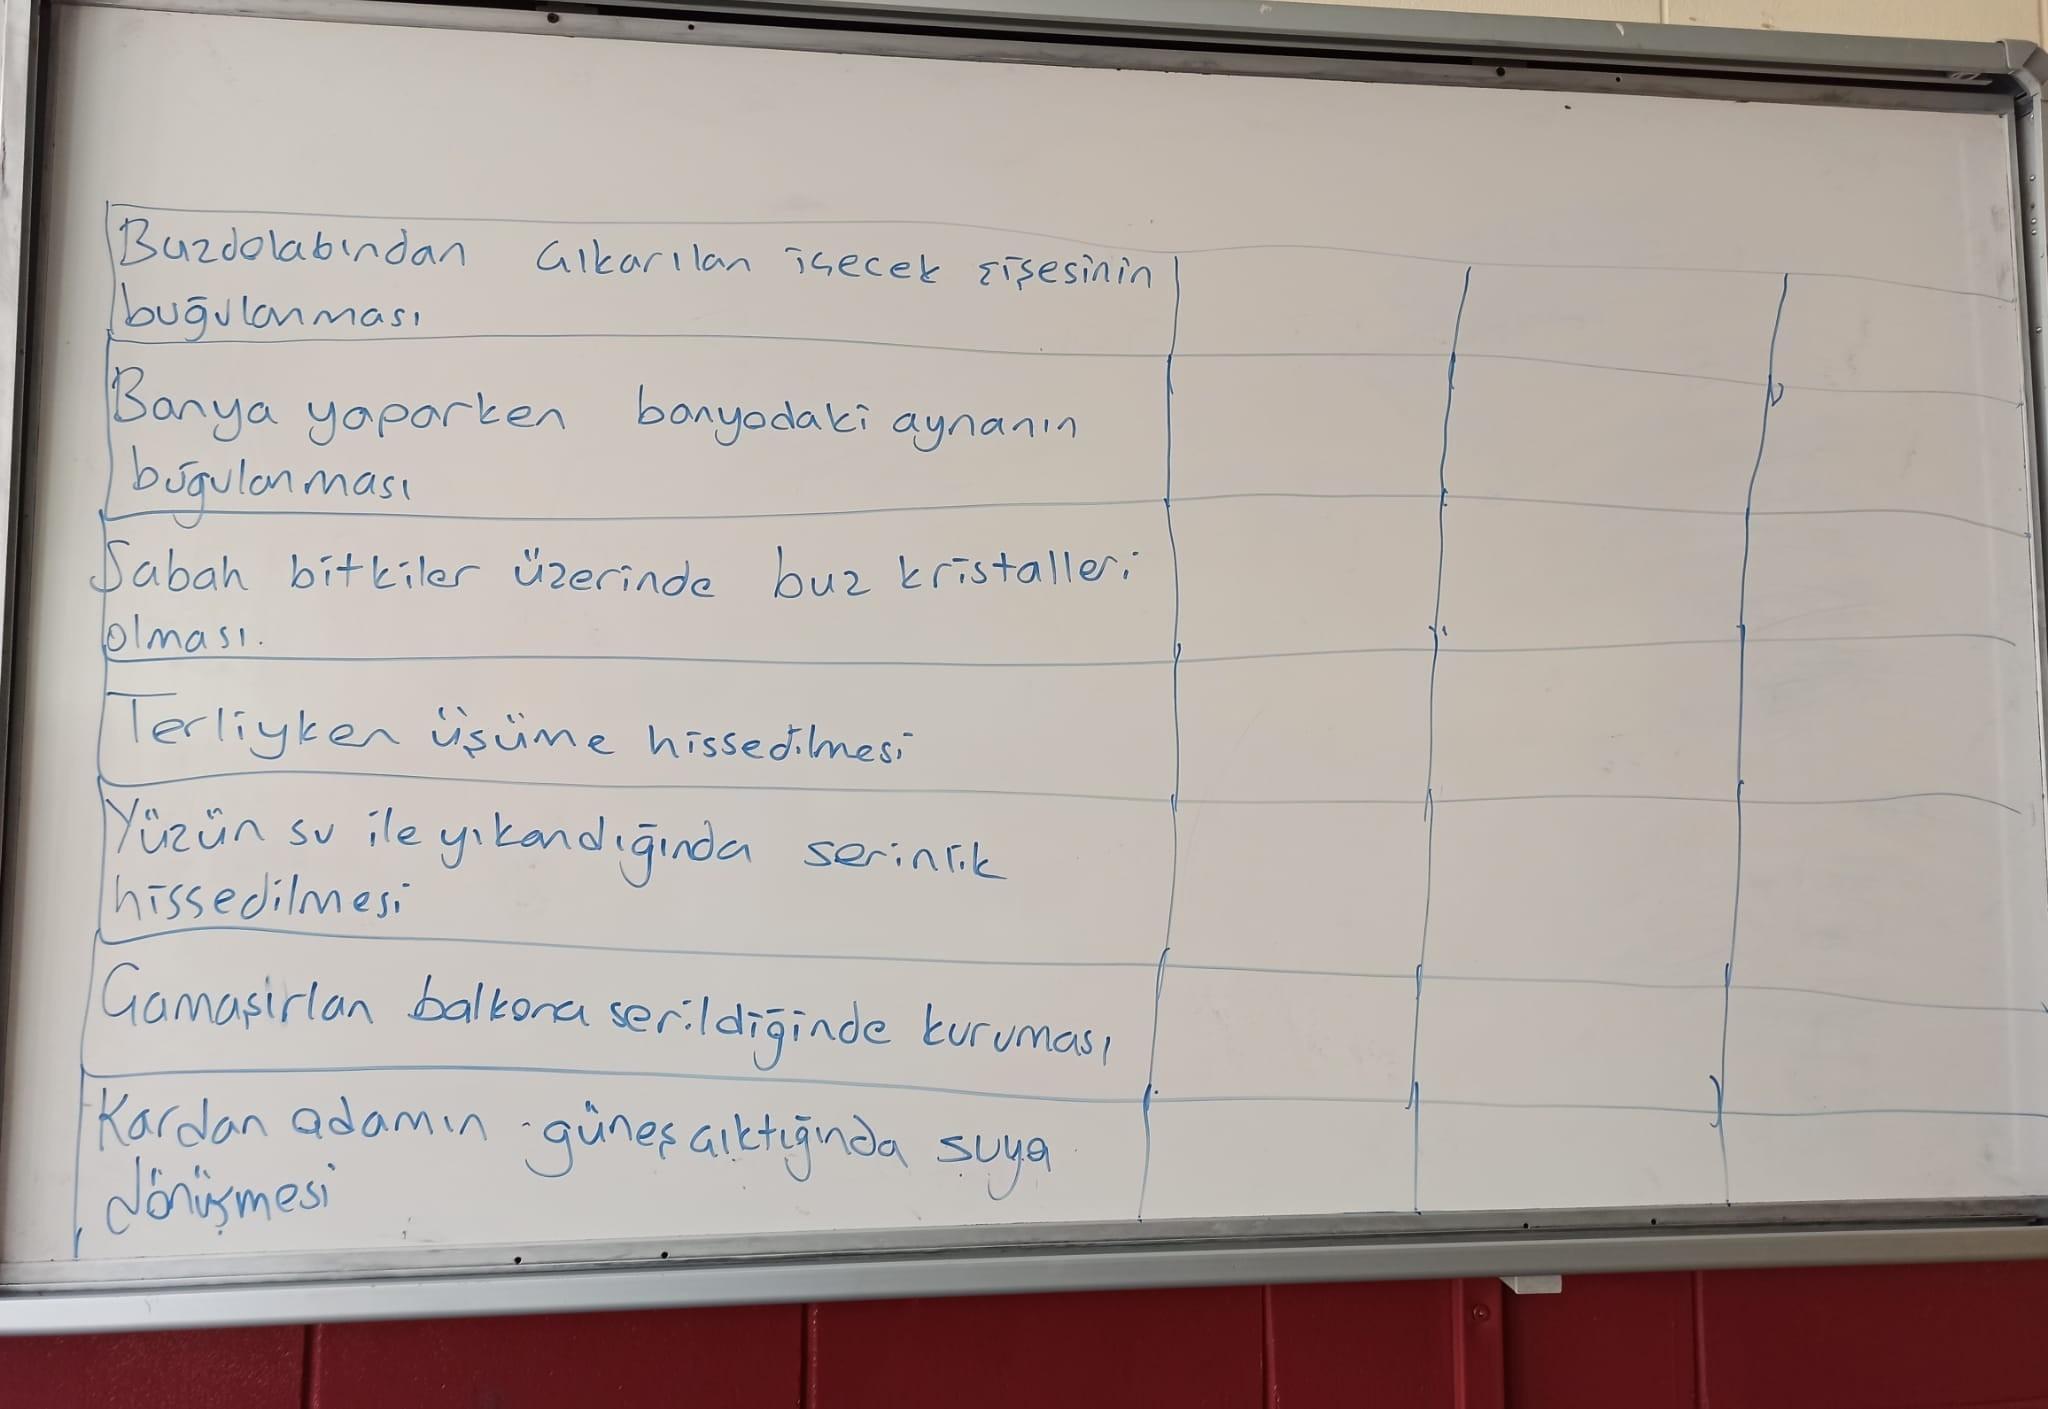 Buzdolabından çıkarılan içecek şişesinin
buğulanması
Banya yaparken banyodaki aynanın
buğulanması
Sabah bitkiler üzerinde buz kristalleri
olması.
Terliyken üşüme hissedilmesi
Yüzün su ile yıkandığında serinlik
hissedilmesi
Çamaşırları balkona serildiğinde kuruması
Kardan adamın güneş çıktığında suya
dönüşmesi